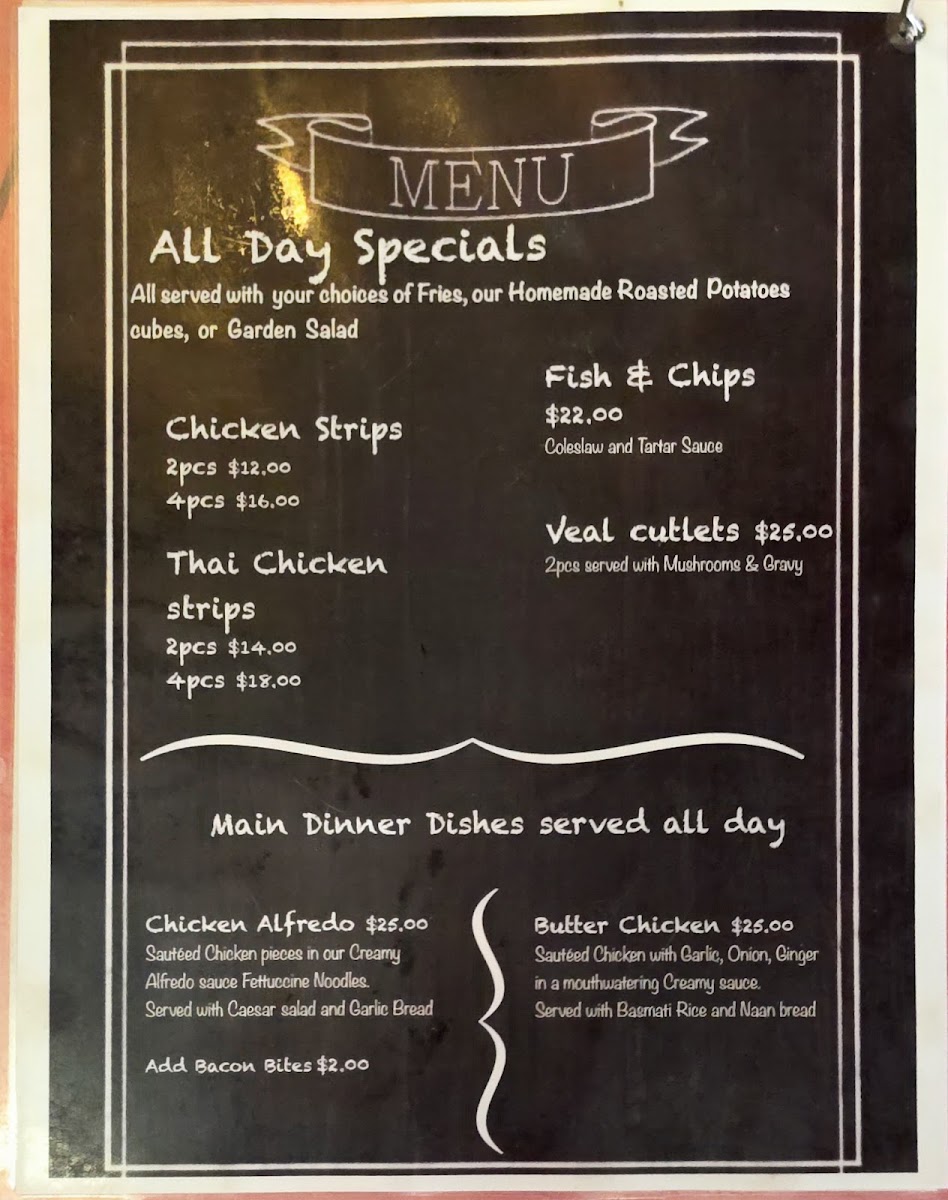 MENU
All Day Specials
All served with your choices of Fries, our Homemade Roasted Potatoes
cubes, or Garden Salad
Chicken Strips
2pcs $12.00
4pcs $16.00
Thai Chicken
strips
2pcs $14.00
4pcs $18.00
Fish & Chips
$22.00
Coleslaw and Tartar Sauce
Veal cutlets $25.00
2pcs served with Mushrooms & Gravy
Main Dinner Dishes served all day
Chicken Alfredo $25.00
Sautéed Chicken pieces in our Creamy
Alfredo sauce Fettuccine Noodles.
Served with Caesar salad and Garlic Bread
Add Bacon Bites $2.00
Butter Chicken $25.00
Sautéed Chicken with Garlic, Onion, Ginger
in a mouthwatering Creamy sauce.
Served with Basmati Rice and Naan bread